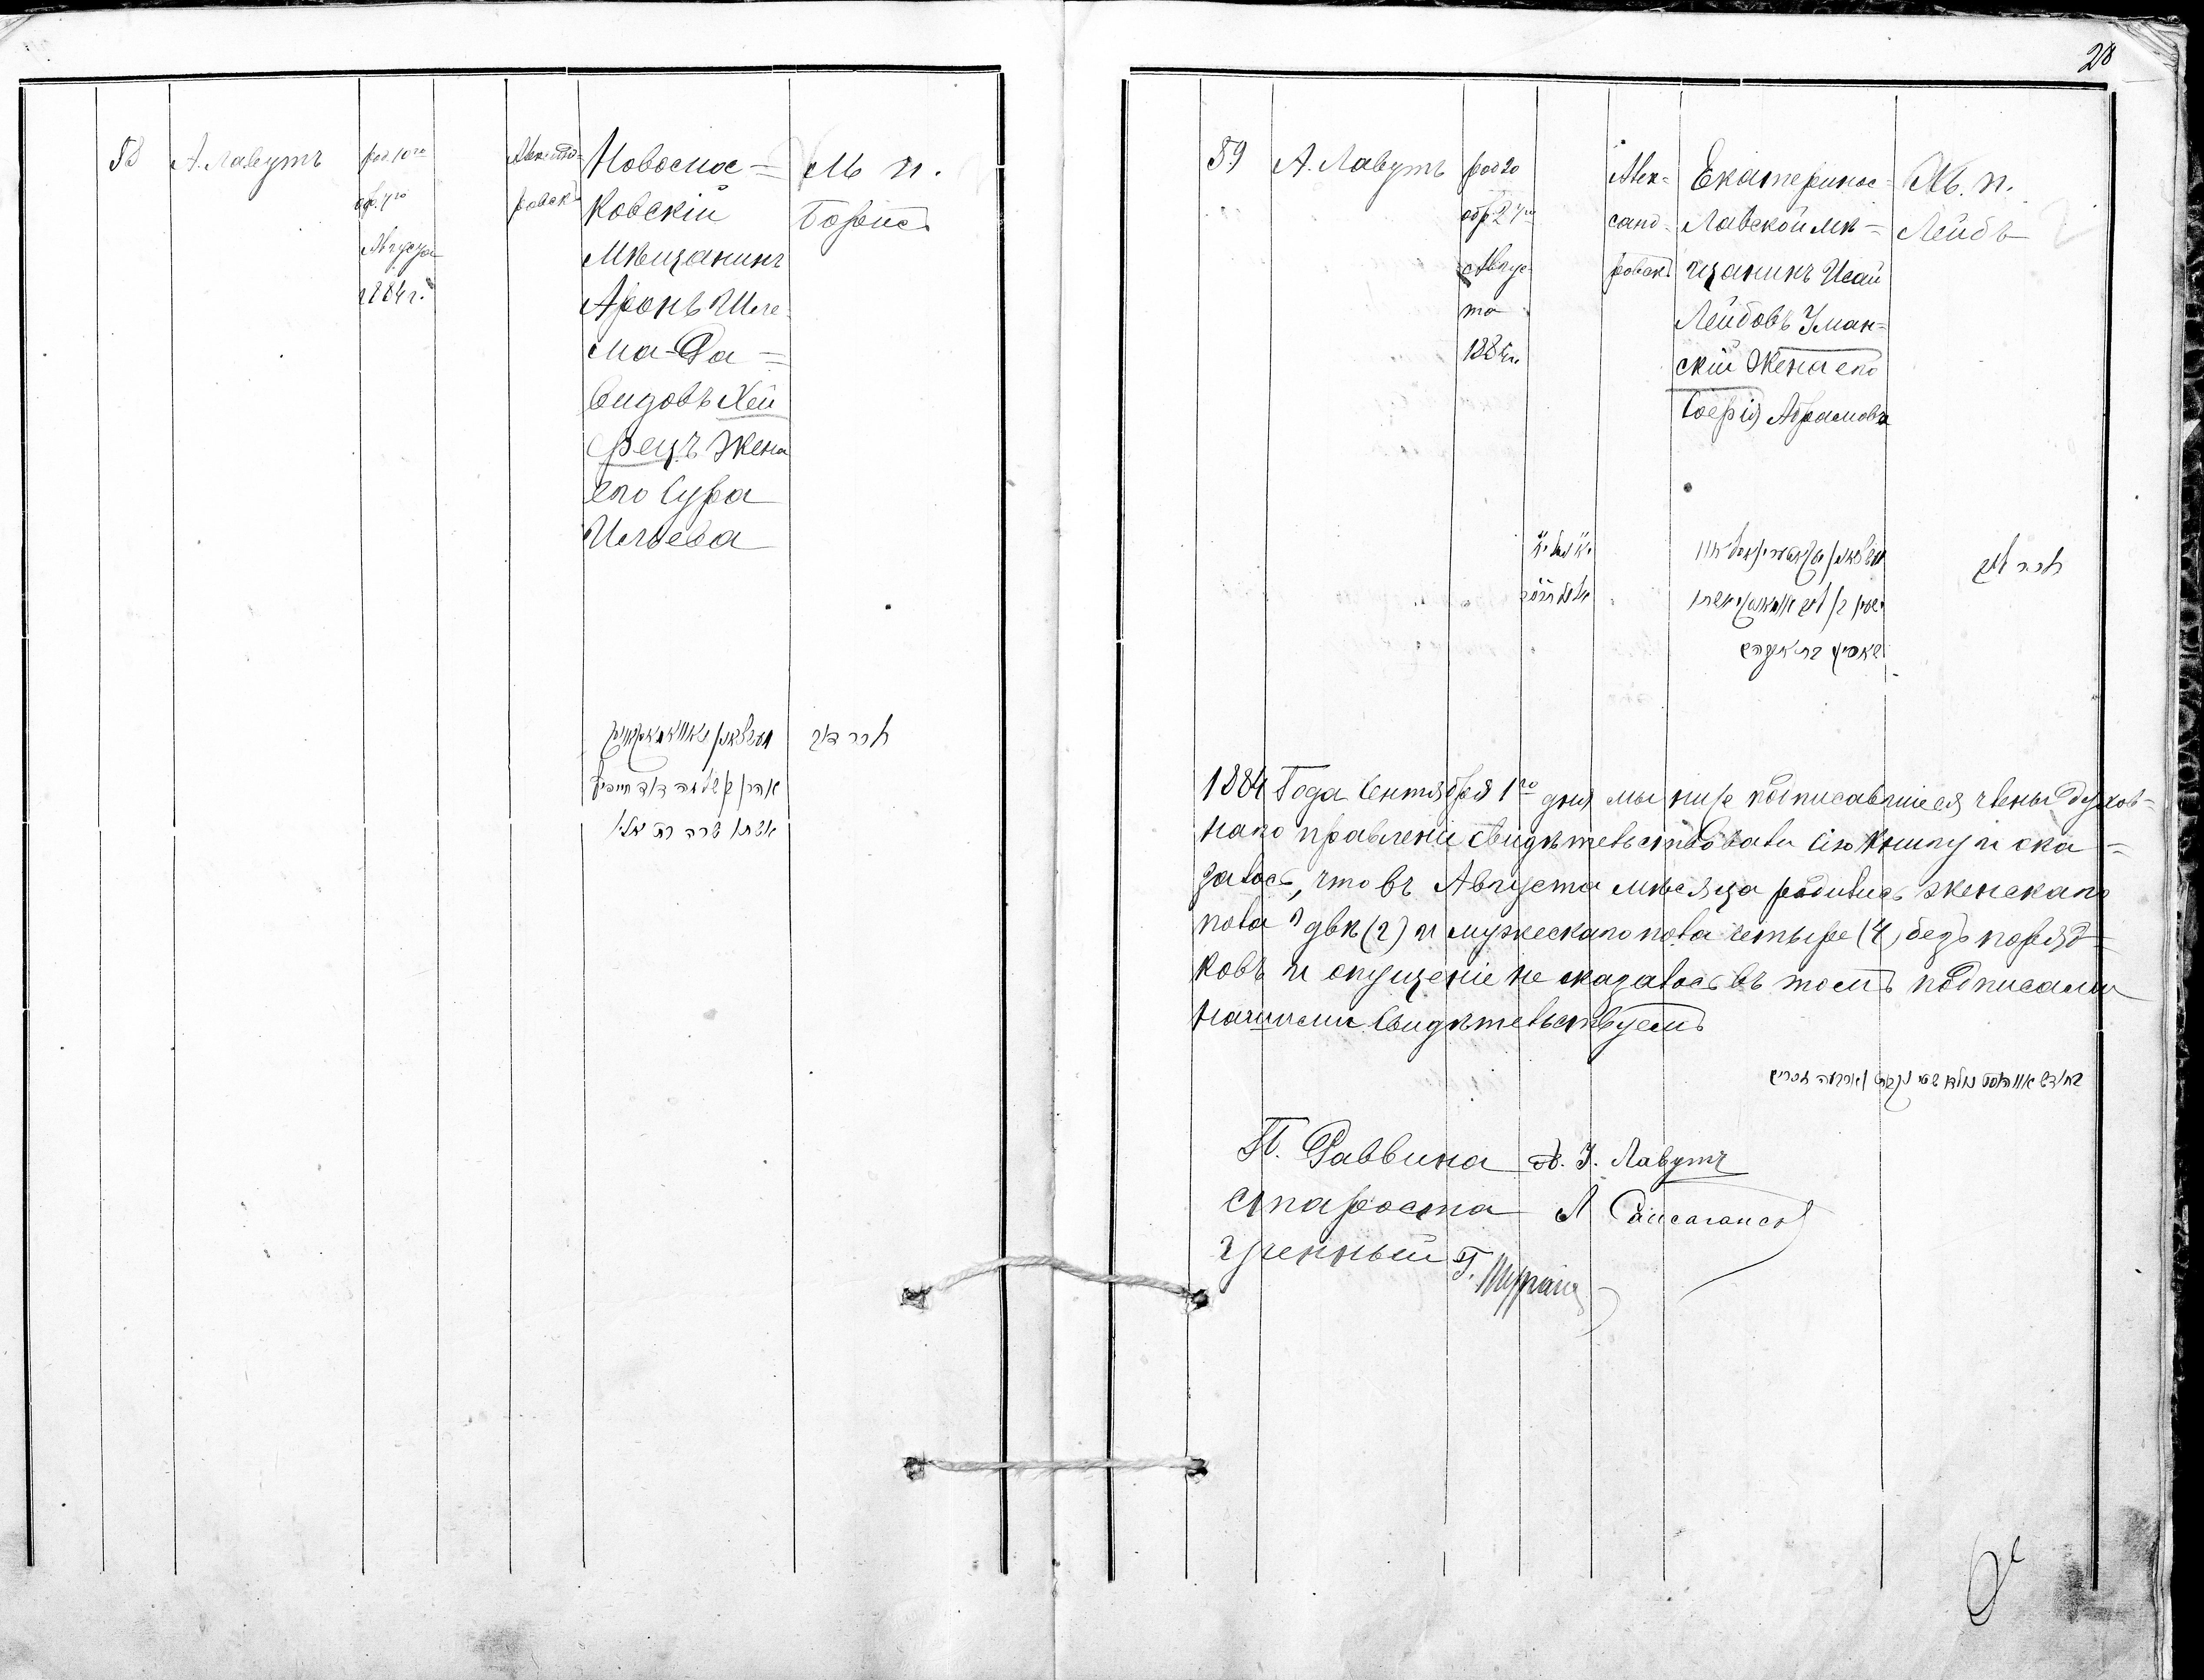 58
А. Лавутъ
род. 10го
обр. 17го
Августа
1884 г.
Александ=
ровскъ
Новомос=
ковскій
Мѣщанинъ
Аронъ Шле
ма-Да=
видовъ Хей
фецъ жена
его Сура
Ильева
М. п.
Борисъ
אהרן שלמה דוד חייפיץ
אשתו שרה בת
זכר
28
59
А. Лавутъ
род 20
обр 27го
Авгус
та
1884 г.
Алек=
санд=
ровскъ
Екатеринос=
лавской мѣ=
щанинъ Исай
Лейбовъ Уман=
скій жена его
Софія Абрамова
М. п.
Лейбъ
זכר ליב
1884 Года Сентября 1го дня мы ниже подписавшіеся члены духов=
наго правленіи свидѣтельствовали сію книгу и ока=
залось, что въ Августа мѣсяца родились женскаго
пола двѣ (2) и мужескаго пола четыре (4), безъ поряд=
ковъ и опущеніе не оказалось въ томъ подписами
нашими свидѣтельствуемъ
П. Раввина А. І. Лавутъ
Староста Л
Ученный Г.